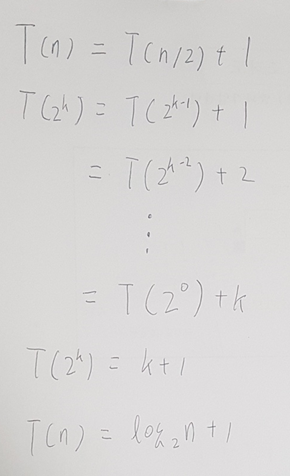 T(n) = T(n/2) + 1
T(2^k) = T(2^{k-1}) + 1
= T(2^{k-2}) + 2
⋮
= T(2^0) + k
T(2^k) = k + 1
T(n) = log_2 n + 1